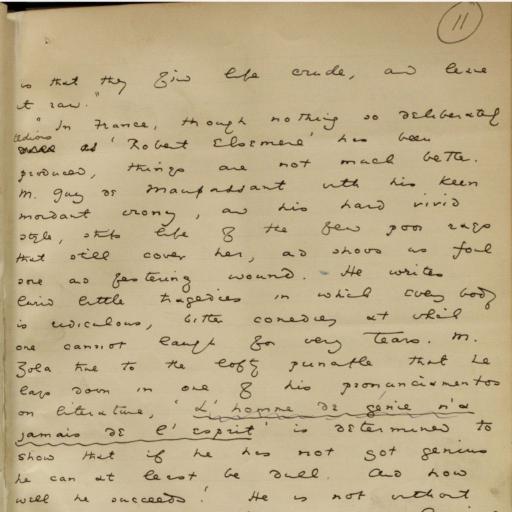 11
is that they find life crude, and leave
it raw."
"In France, though nothing so deliberately
tedious as 'Robert Elsmere' has been
produced, things are not much better.
M. Guy de Maupassant with his keen
mordant irony, and his hard vivid
style, strips life of the few poor rags
that still cover her, and shows us foul
sore and festering wound. He writes
lurid little tragedies in which everybody
is ridiculous, bitter comedies at which
one cannot laugh for very tears. M.
Zola true to the lofty principle that he
lays down in one of his pronunciamentos
on literature, 'L'homme de génie n'a
jamais de l'esprit' is determined to
show that if he has not got genius
he can at least be dull. And how
well he succeeds! He is not without